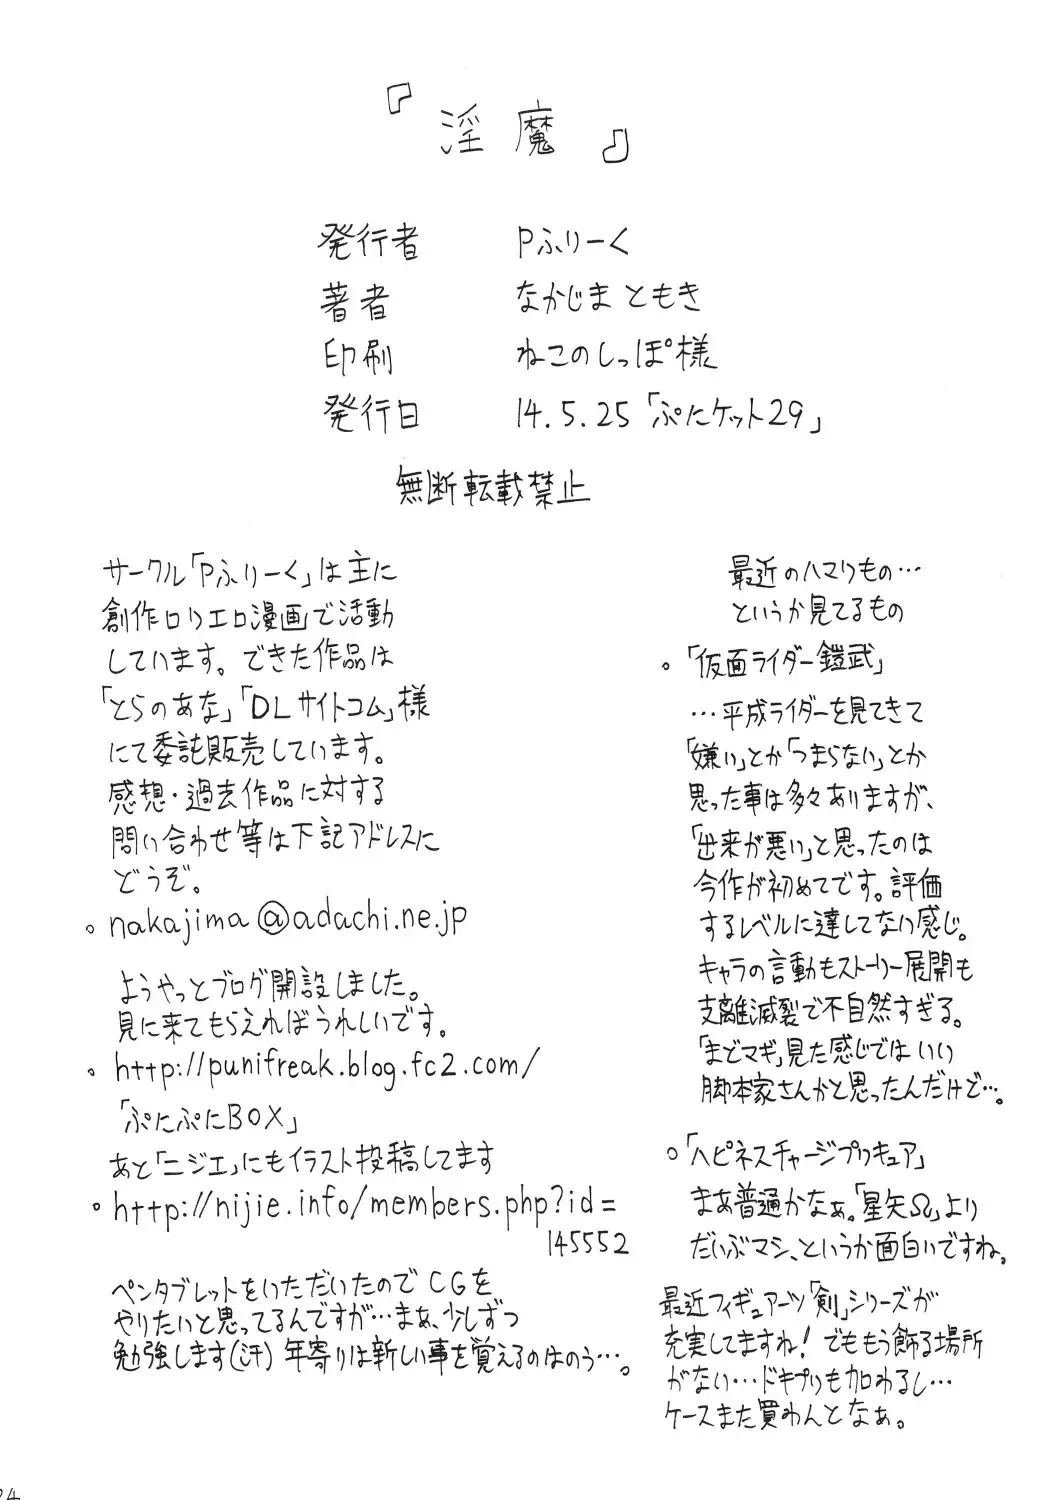 『淫魔』
発行者 Pふりーく
著者 なかじまともき
印刷 ねこのしっぽ様
発行日 14.5.25「ぷにケット29」
無断転載禁止
サークル「Pふりーく」は主に
創作ロリエロ漫画で活動
しています。できた作品は
「とらのあな」「DLサイトコム」様
にて委託販売しています。
感想・過去作品に対する
問い合わせ等は下記アドレスに
どうぞ。
。nakajima@adachi.ne.jp
ようやっとブログ開設しました。
見に来てもらえればうれしいです。
。http://punifreak.blog.fc2.com/
「ぷにぷにBOX」
あと「ニジエ」にもイラスト投稿してます
。http://nijie.info/members.php?id=
145552
ペンタブレットをいただいたのでCGを
やりたいと思ってるんですが…まぁ、少しずつ
勉強します(汗) 年寄りは新しい事を覚えるのはのう…。
最近のハマりもの…
というか見てるもの
。「仮面ライダー鎧武」
…平成ライダーを見てきて
「嫌い」とか「つまらない」とか
思った事は多々ありますが、
「出来が悪い」と思ったのは
今作が初めてです。評価
するレベルに達してない感じ。
キャラの言動もストーリー展開も
支離滅裂で不自然すぎる。
「まどマギ」見た感じではいい
脚本家さんかと思ったんだけど…。
。「ハピネスチャージプリキュア」
まあ普通かなぁ。「星矢Ω」より
だいぶマシ、というか面白いですね。
最近フィギュアーツ「剣」シリーズが
充実してますね！でももう飾る場所
がない…ドキプリも加わるし…
ケースまた買わんとなぁ。
24